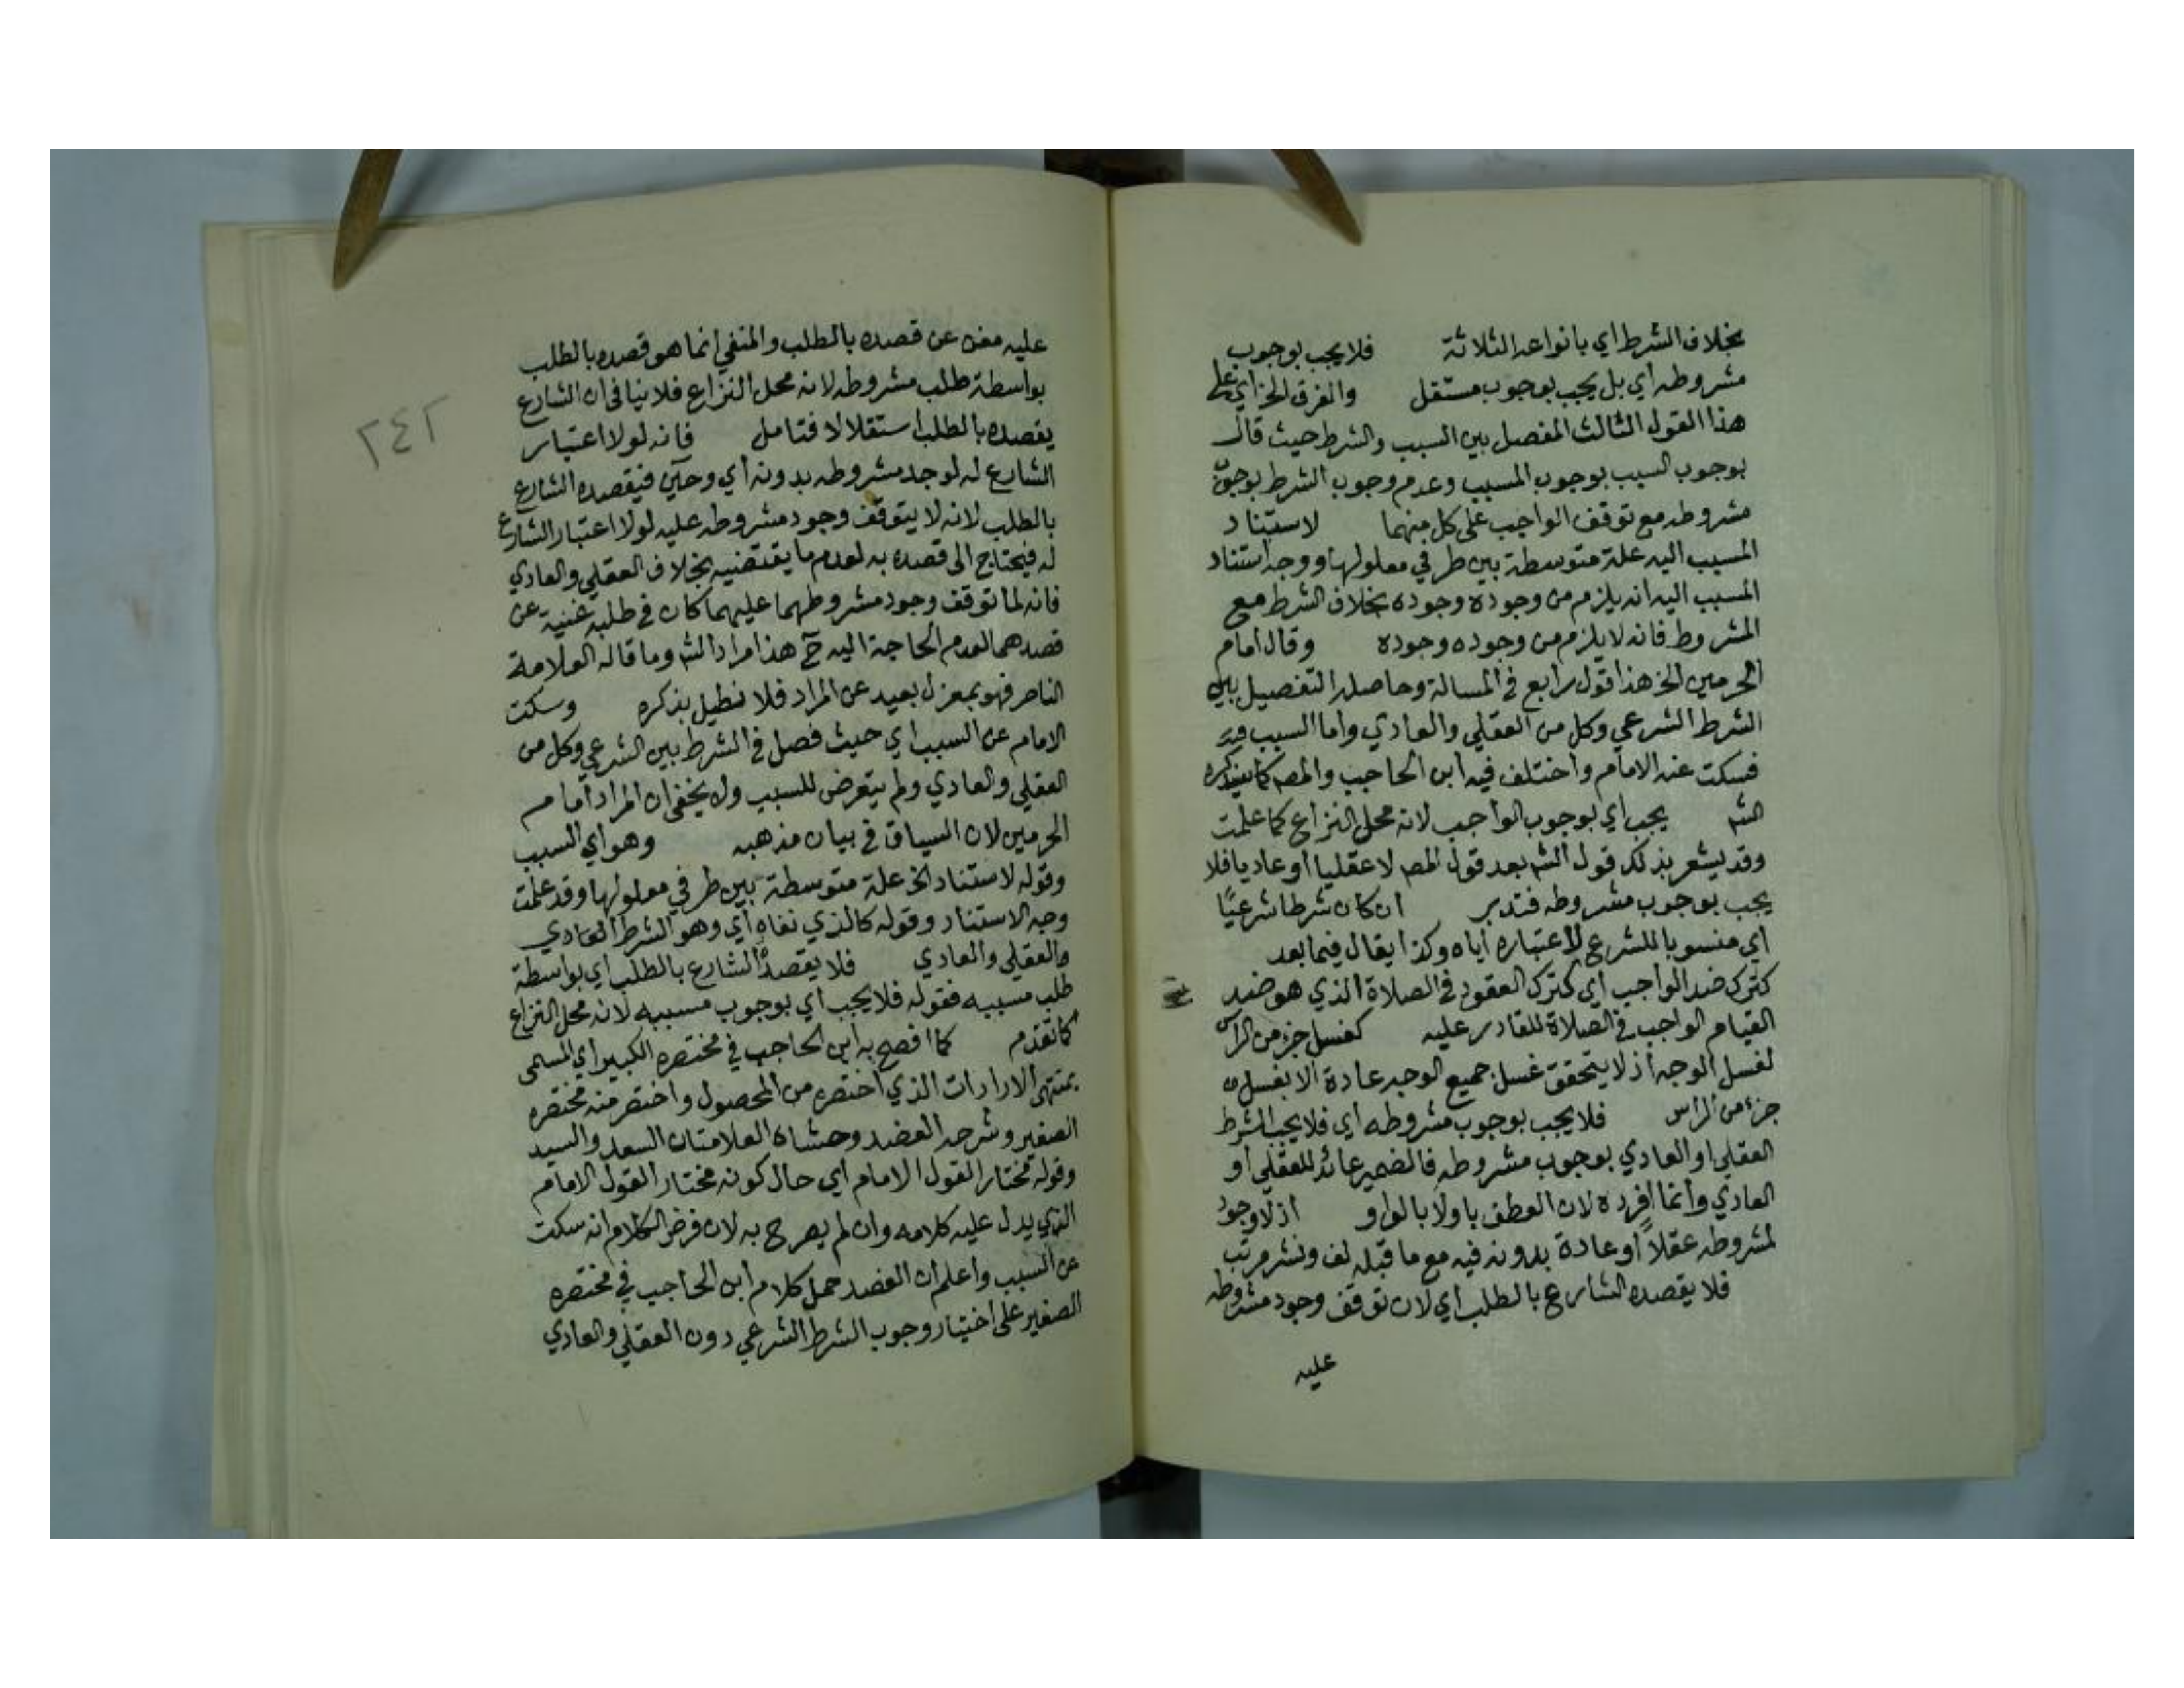 بخلاف الشرط اي بانواعه الثلاثة فلا يجب بوجوب
مشروطه اي بل يجب بوجوب مستقل والفرق الخ اي على
هذا القول الثالث المفصل بين السبب والشرط حيث قال
بوجوب السبب بوجوب المسبب وعدم وجوب الشرط بوجوب
مشروطه مع توقف الواجب على كل منهما لاستناد
المسبب اليه علة متوسطة بين طرفي معلولها ووجه استناد
المسبب اليه انه يلزم من وجوده وجوده بخلاف الشرط مع
المشروط فانه لا يلزم من وجوده وجوده وقال امام
الحرمين الخ هذا قول رابع في المسالة وحاصله التفصيل بين
الشرط الشرعي وكل من العقلي والعادي واما السبب
فسكت عنه الامام واختلف فيه ابن الحاجب والمصـ كما سيذكره
الشـ يجب اي بوجوب الواجب لانه محل النزاع كما علمت
وقد يشعر بذلك قول الشـ بعد قول المصـ لا عقليا او عاديا فلا
يجب بوجوب مشروطه فتدبر ان كان شرطا شرعيًا
اي منسوبا للشرع لاعتباره اياه وكذا يقال فيما بعد
كترك ضد الواجب اي كترك القعود في الصلاة الذي هو ضد
القيام الواجب في الصلاة للقادر عليه كغسل جزء من الرأس
لغسل الوجه اذ لا يتحقق غسل جميع الوجه عادة الا بغسل
جزء من الراس فلا يجب بوجوب مشروطه اي فلا يجب الشرط
العقلي او العادي بوجوب مشروطه فالضمير عائد للعقلي او
العادي وانما افرده لان العطف باو لا بالواو اذ لا وجود
لمشروطه عقلاً او عادة بدونه فيه مع ما قبله لف ونشر مرتب
فلا يقصده الشارع بالطلب اي لان توقف وجود مشروطه
عليه
٢٤٢
عليه مغن عن قصده بالطلب والمنفي انما هو قصده بالطلب
بواسطة طلب مشروطه لانه محل النزاع فلا ينافي ان الشارع
يقصده بالطلب استقلالا فتامل فانه لولا اعتبار
الشارع له لوجد مشروطه بدونه اي وحـ فيقصده الشارع
بالطلب لانه لا يتوقف وجود مشروطه عليه لولا اعتبار الشارع
له فيحتاج الى قصده به لعدم ما يقتضيه بخلاف العقلي والعادي
فانه لما توقف وجود مشروطهما عليهما كان في طلبه غنية عن
قصدهما لعدم الحاجة اليه حـ هذا مراد الشـ وما قاله العلامة
الناصر فهو بمعزل بعيد عن المراد فلا نطيل بذكره وسكت
الامام عن السبب اي حيث فصل في الشرط بين الشرعي وكل من
العقلي والعادي ولم يتعرض للسبب ولا يخفي ان المراد امام
الحرمين لان السياق في بيان مذهبه وهو اي السبب
وقوله لاستناد الخ علة متوسطة بين طرفي معلولها وقد علمت
وجه الاستناد وقوله كالذي نفاه اي وهو الشرط العادي
والعقلي والعادي فلا يقصده الشارع بالطلب اي بواسطة
طلب مسببه فقوله فلا يجب اي بوجوب مسببه لانه محل النزاع
كما تقدم كما افصح به ابن الحاجب في مختصره الكبير اي المسمى
بمنتهى الارادات الذي اختصره من المحصول واختصر منه مختصره
الصغير وشرحه العضد وحشاه العلامتان السعد والسيد
وقوله مختارا لقول الامام اي حال كونه مختارا لقول الامام
الذي يدل عليه كلامه وان لم يصرح به لان فرض الكلام انه سكت
عن السبب واعلم ان العضد حمل كلام ابن الحاجب في مختصره
الصغير على اختيار وجوب الشرط الشرعي دون العقلي والعادي